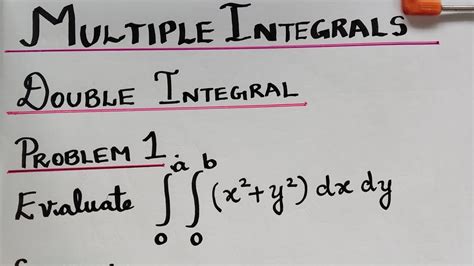 MULTIPLE INTEGRALS
DOUBLE INTEGRAL
PROBLEM 1.
Evaluate ∫₀ᵃ ∫₀ᵇ (x²+y²) dx dy